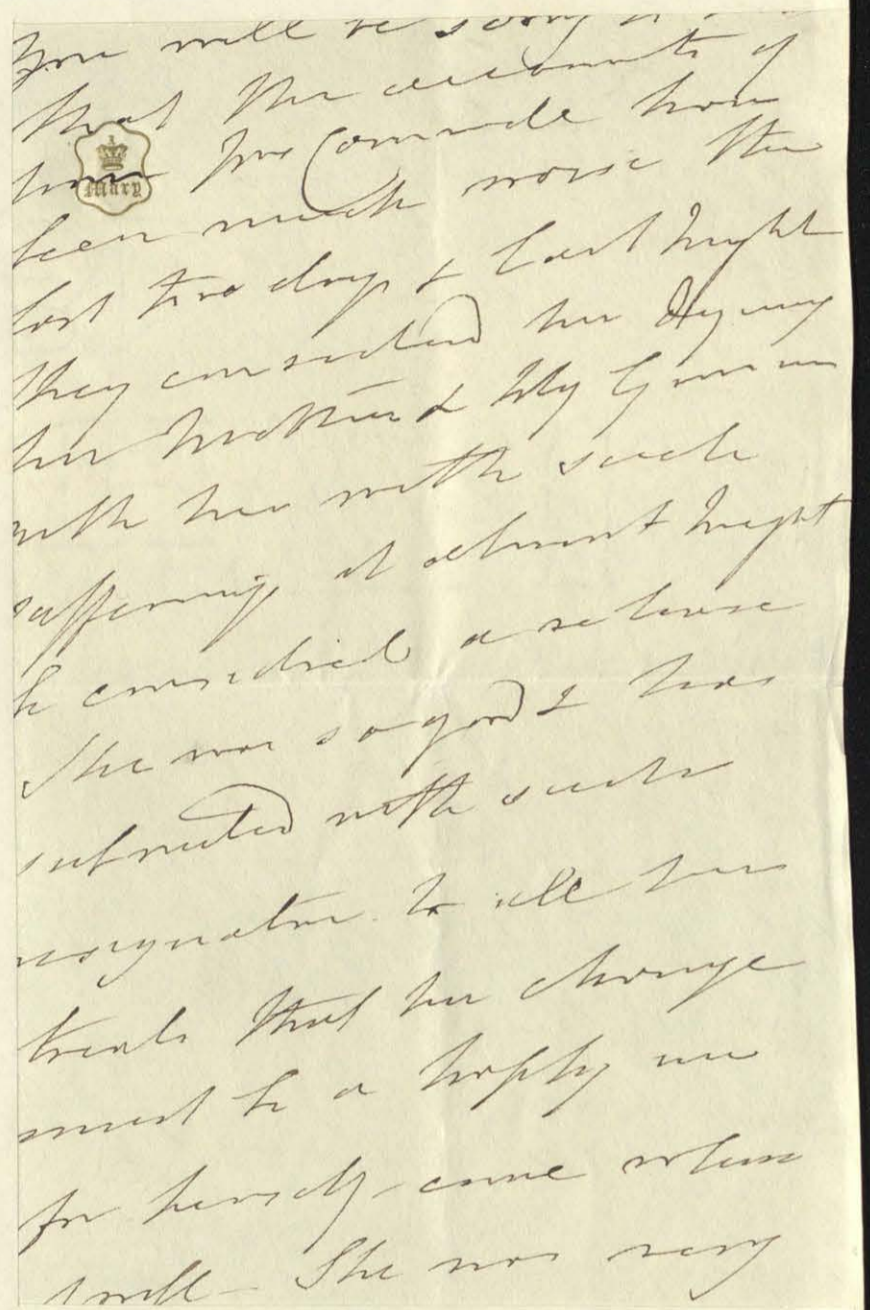 You will be sorry to
that the accounts of
Mary
poor Mrs have
been much worse the
last two days & last night
they considered her dying
her Mother & with
with her with such
suffering it almost might
be considered a release
She was so good & has
submitted with such
resignation to all her
trials that her change
must be a happy one
for herself
She was very